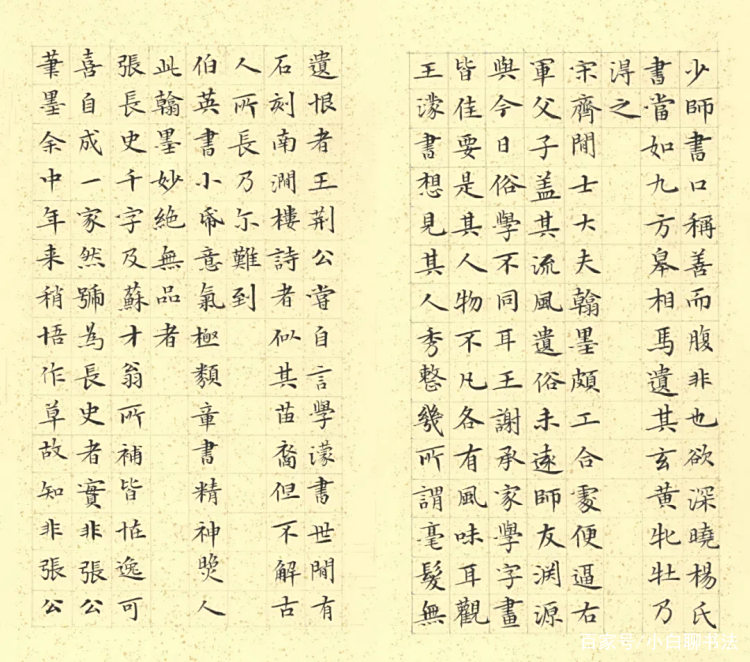 少師書口稱善而腹非也欲深曉楊氏
書當如九方皋相馬遺其玄黃牝牡乃
淂之
宗齊閒士大夫翰墨頗工合處便逼右
軍父子盖其流風遺俗未遠師友渕源
與今日俗學不同耳王謝承家學字畫
皆佳要是其人物不凡各有風味耳觀
王濛書想見其人秀整幾所謂毫髮無
遺恨者王荆公嘗自言學濛書世閒有
石刻南澗樓詩者似其苗裔但不解古
人所長乃尓難到
伯英書小帋意氣極類章書精神煚人
此翰墨妙絶無品者
張長史千字及蘇才翁所補皆恠逸可
喜自成一家然號為長史者實非張公
茟墨余中年来稍悟作草故知非張公
百家号/小白聊书法